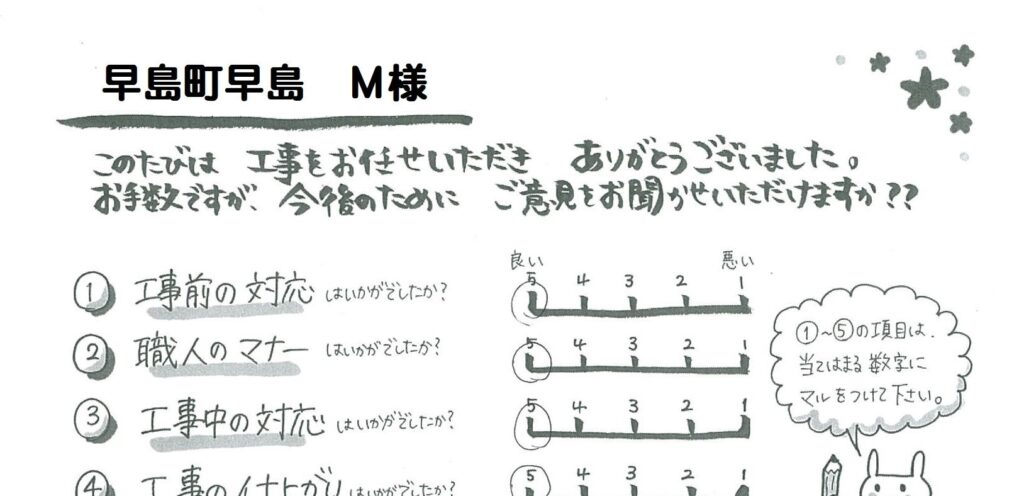 早島町早島 M様
このたびは 工事をお任せいただき ありがとうございました。
お手数ですが、今後のために ご意見をお聞かせいただけますか??
良い 悪い
① 工事前の対応 はいかがでしたか? 5 4 3 2 1
② 職人のマナー はいかがでしたか? 5 4 3 2 1
③ 工事中の対応 はいかがでしたか? 5 4 3 2 1
④ 工事の仕上がり はいかがでしたか? 5 4 3 2 1
①~⑤の項目は、
当てはまる数字に
マルをつけて下さい。